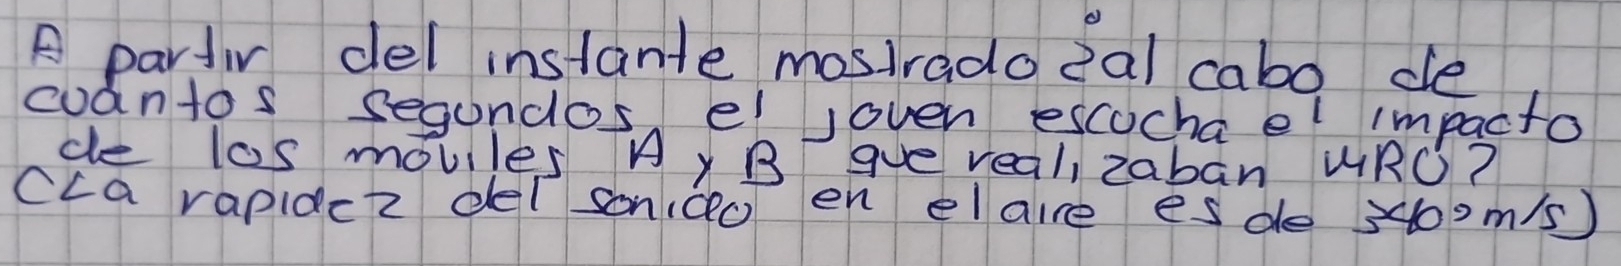 A partir del instante mostrado ¿al cabo de
cuántos segundos el joven escucha el impacto
de los móviles A y B que realizaban MRU?
(La rapidez del sonido en el aire es de 340 m/s)